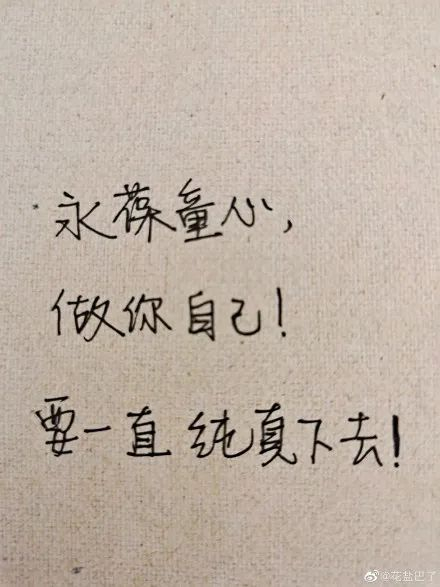 永葆童心,
做你自己!
要一直纯真下去!
@花盐巴了